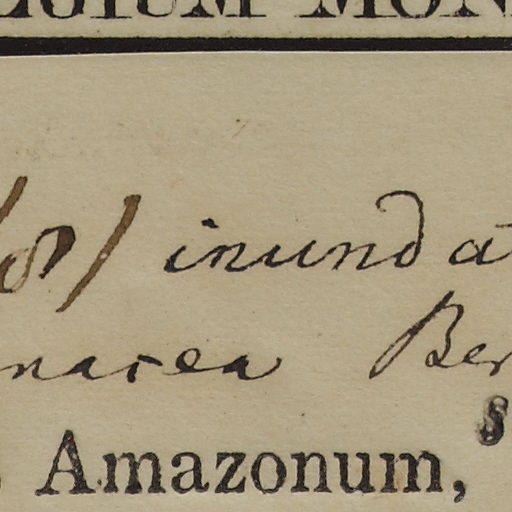 EGIUM MON
8) inunda
nacea Ber
s
Amazonum,